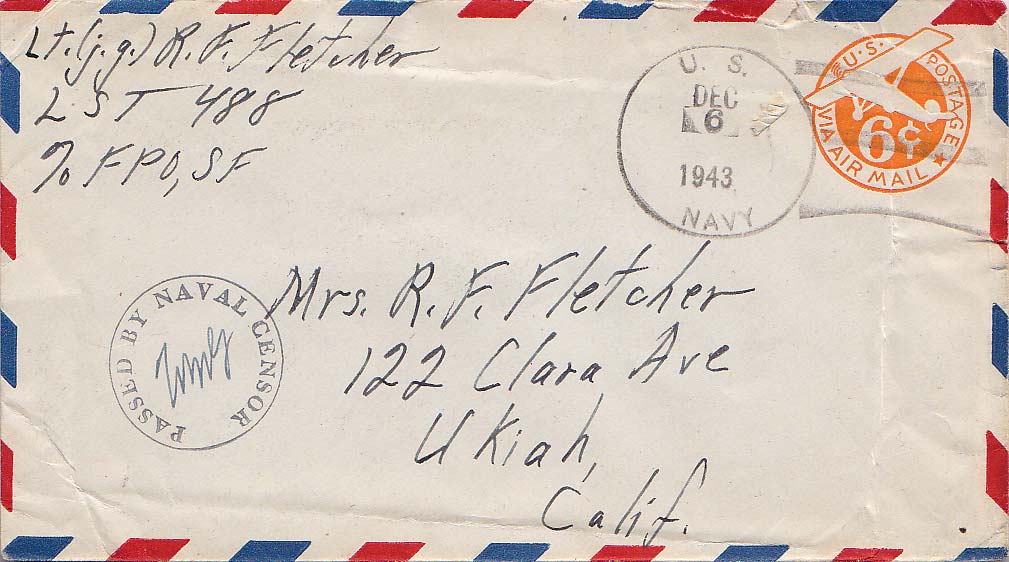 Lt.(j.g.) R. F. Fletcher
LST 488
% FPO, SF
U. S.
DEC
6
1943
NAVY
U.S. POSTAGE
6¢
VIA AIR MAIL
PASSED BY NAVAL CENSOR
Mrs. R. F. Fletcher
122 Clara Ave
Ukiah,
Calif.